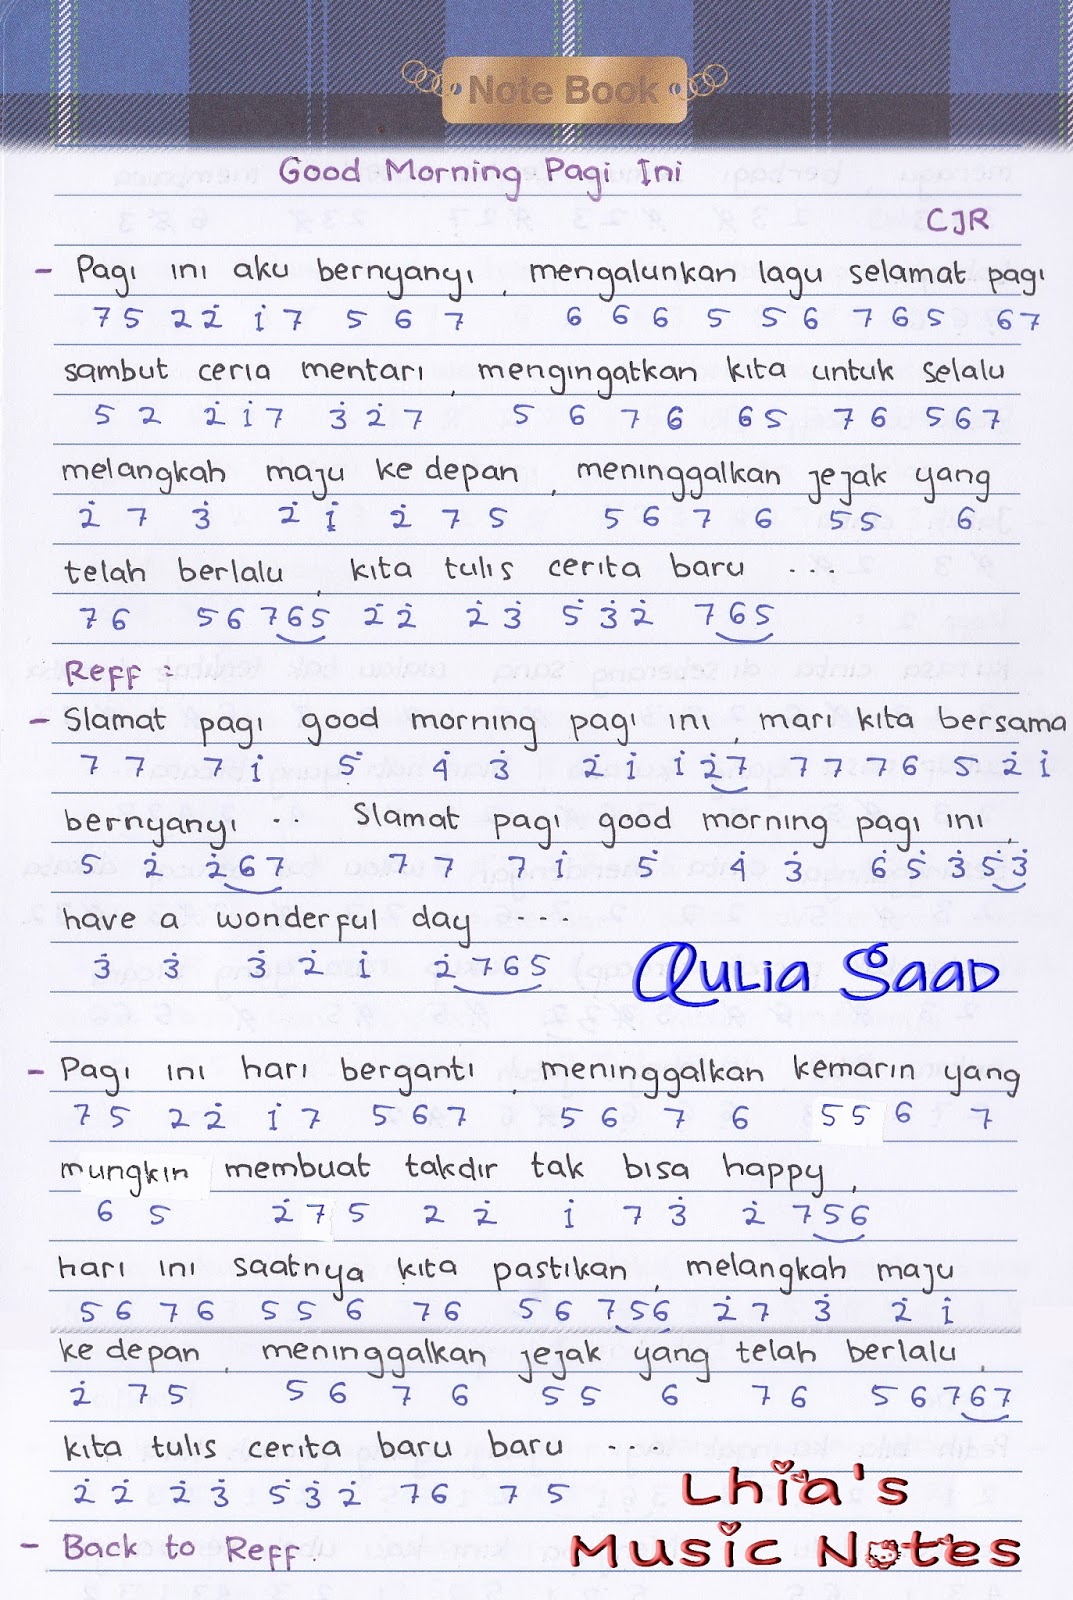 Note Book
Good Morning Pagi Ini
CJR
- Pagi ini aku bernyanyi, mengalunkan lagu selamat pagi
7 5 2 2̇ 1̇ 7 5 6 7 6 6 6 5 5 6 7 6 5 6 7
sambut ceria mentari, mengingatkan kita untuk selalu
5 2 2̇ 1̇ 7 3̇ 2̇ 7 5 6 7 6 6 5 7 6 5 6 7
melangkah maju ke depan, meninggalkan jejak yang
2̇ 7 3̇ 2̇ 1̇ 2̇ 7 5 5 6 7 6 5 5 6
telah berlalu, kita tulis cerita baru ....
7 6 5 6 7 6 5 2̇ 2̇ 2̇ 3̇ 5̇ 3̇ 2̇ 7 6 5
Reff :
- Slamat pagi good morning pagi ini, mari kita bersama
7 7 7 1̇ 5̇ 4̇ 3̇ 2̇ 1̇ 1̇ 2̇ 7 7 7 7 6 5 2̇ 1̇
bernyanyi .. Slamat pagi good morning pagi ini,
5 2̇ 2̇ 6 7 7 7 7 1̇ 5̇ 4̇ 3̇ 6̇ 5̇ 3̇ 5̇ 3̇
have a wonderful day ....
3̇ 3̇ 3̇ 2̇ 1̇ 2̇ 7 6 5
Aulia Saad
- Pagi ini hari berganti, meninggalkan kemarin yang
7 5 2 2̇ 1̇ 7 5 6 7 5 6 7 6 5 5 6 7
mungkin membuat takdir tak bisa happy,
6 5 2̇ 7 5 2 2̇ 1̇ 7 3̇ 2̇ 7 5 6
hari ini saatnya kita pastikan, melangkah maju
5 6 7 6 5 5 6 7 6 5 6 7 5 6 2̇ 7 3̇ 2̇ 1̇
ke depan, meninggalkan jejak yang telah berlalu,
2̇ 7 5 5 6 7 6 5 5 6 7 6 5 6 7 6 7
kita tulis cerita baru baru ....
2̇ 2̇ 2̇ 3̇ 5̇ 3̇ 2̇ 7 6 7 5
Lhia's
- Back to Reff.
Music Notes